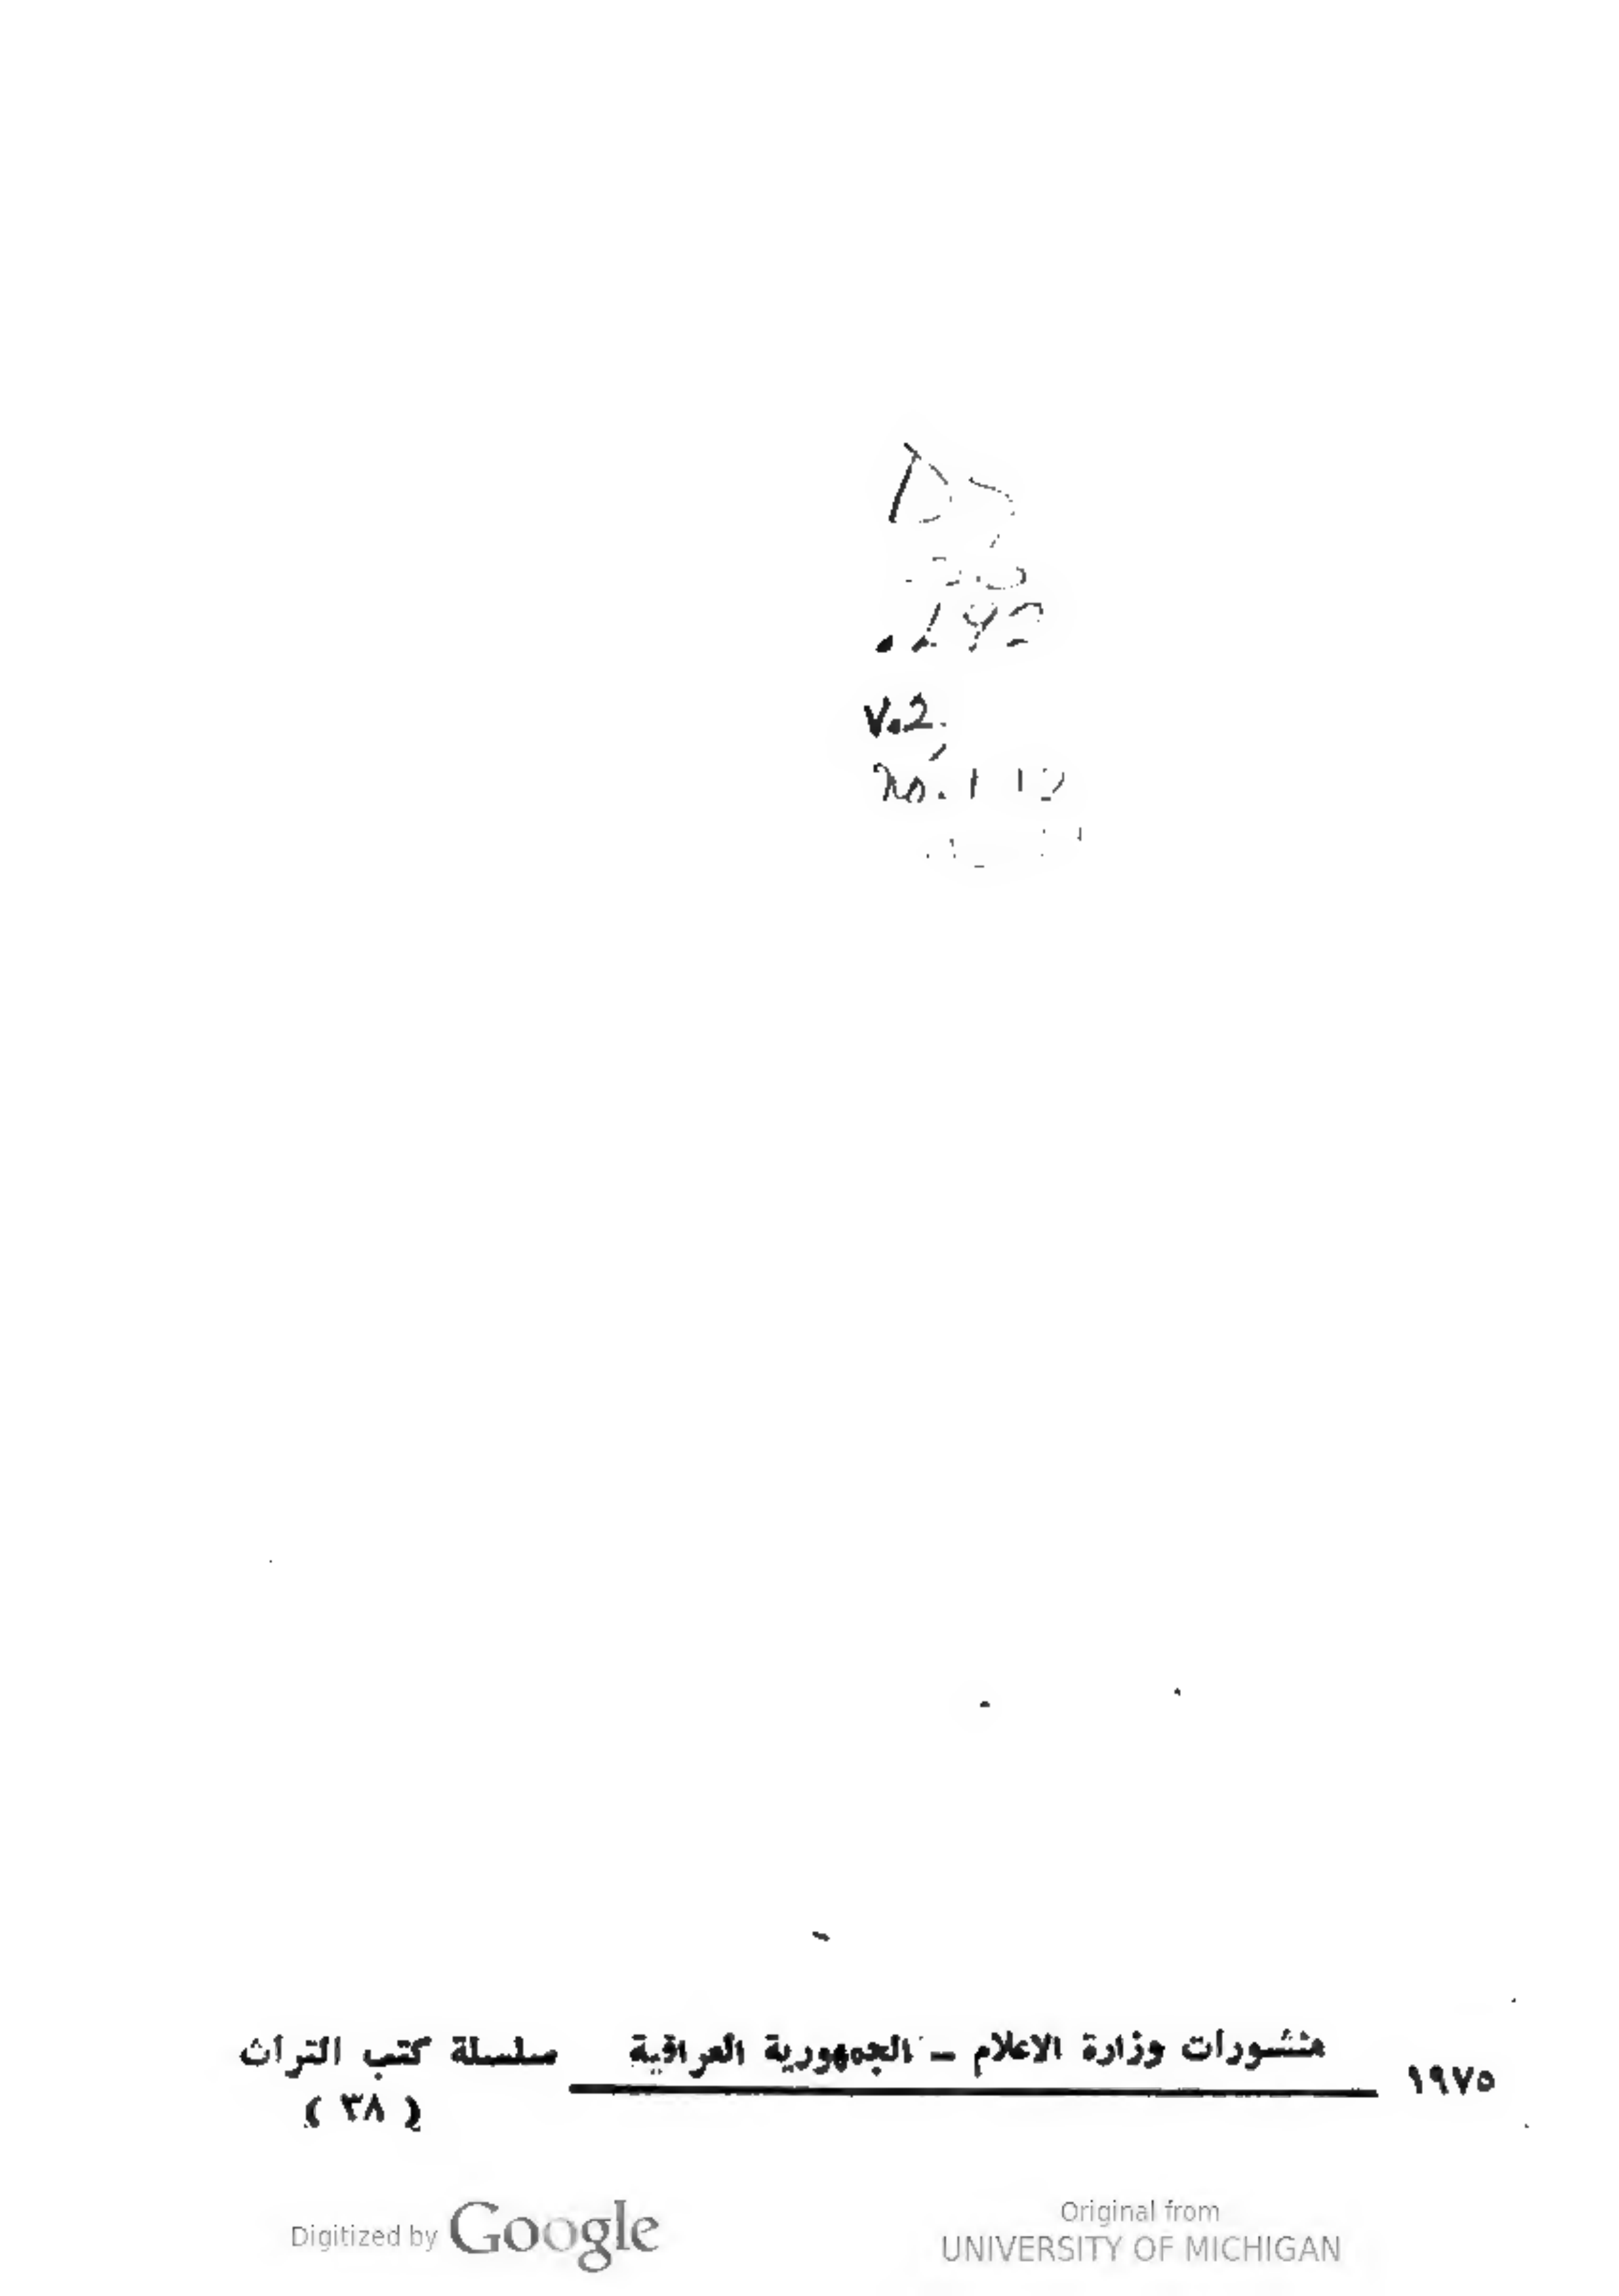 v.2
no.
منشورات وزارة الاعلام – الجمهورية العراقية سلسلة كتب التراث
١٩٧٥
( ٣٨ )
Digitized by Google
Original from
UNIVERSITY OF MICHIGAN